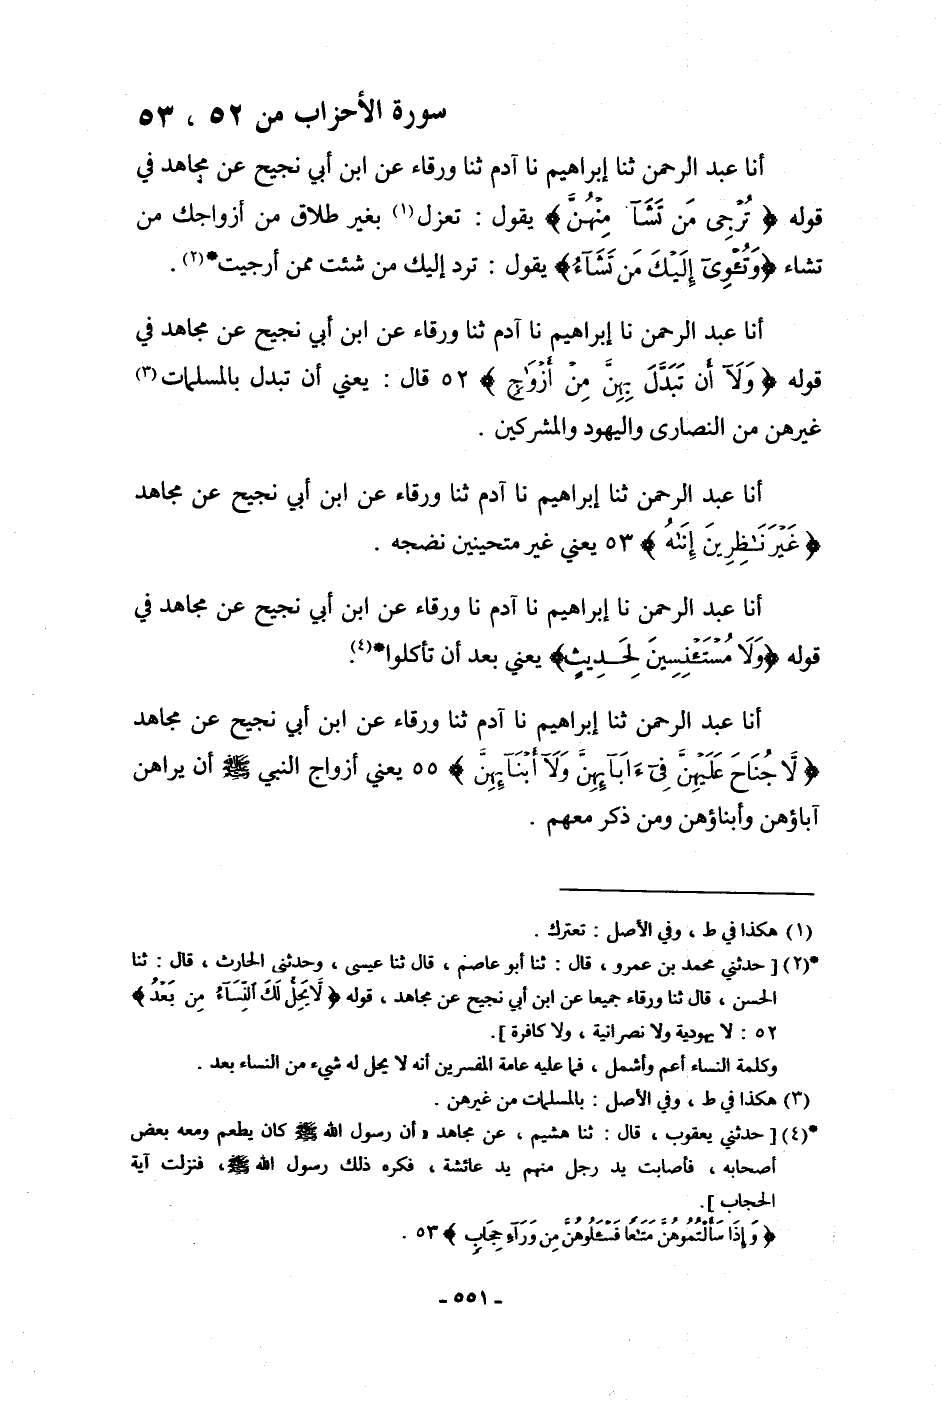 سورة الأحزاب من ٥٢ ، ٥٣
أنا عبد الرحمن ثنا إبراهيم نا آدم ثنا ورقاء عن ابن أبي نجيح عن مجاهد في
قوله ﴿ تُرْجِى مَن تَشَآءُ مِنْهُنَّ ﴾ يقول : تعزل(١) بغير طلاق من أزواجك من
تشاء ﴿وَتُـْٔوِىٓ إِلَيْكَ مَن تَشَآءُ﴾ يقول : ترد إليك من شئت ممن أرجيت*(٢) .
أنا عبد الرحمن نا إبراهيم نا آدم ثنا ورقاء عن ابن أبي نجيح عن مجاهد في
قوله ﴿ وَلَآ أَن تَبَدَّلَ بِهِنَّ مِنْ أَزْوَٰجٍ ﴾ ٥٢ قال : يعني أن تبدل بالمسلمات(٣)
غيرهن من النصارى واليهود والمشركين .
أنا عبد الرحمن ثنا إبراهيم نا آدم ثنا ورقاء عن ابن أبي نجيح عن مجاهد
﴿ غَيْرَ نَـٰظِرِينَ إِنَىٰهُ ﴾ ٥٣ يعني غير متحينين نضجه .
أنا عبد الرحمن نا إبراهيم نا آدم نا ورقاء عن ابن أبي نجيح عن مجاهد في
قوله ﴿وَلَا مُسْتَـْٔنِسِينَ لِحَـدِيثٍ﴾ يعني بعد أن تأكلوا*(٤).
أنا عبد الرحمن ثنا إبراهيم نا آدم ثنا ورقاء عن ابن أبي نجيح عن مجاهد
﴿ لَّا جُنَاحَ عَلَيْهِنَّ فِىٓ ءَابَآئِهِنَّ وَلَآ أَبْنَآئِهِنَّ ﴾ ٥٥ يعني أزواج النبي ﷺ أن يراهن
آباؤهن وأبناؤهن ومن ذكر معهم .
(١) هكذا في ط ، وفي الأصل : تعترك .
*(٢) [ حدثني محمد بن عمرو ، قال : ثنا أبو عاصم ، قال ثنا عيسى ، وحدثني الحارث ، قال : ثنا
الحسن ، قال ثنا ورقاء جميعا عن ابن أبي نجيح عن مجاهد ، قوله ﴿ لَّا يَحِلُّ لَكَ ٱلنِّسَآءُ مِنۢ بَعْدُ ﴾
٥٢ : لا يهودية ولا نصرانية ، ولا كافرة ].
وكلمة النساء أعم وأشمل ، فما عليه عامة المفسرين أنه لا يحل له شيء من النساء بعد .
(٣) هكذا في ط ، وفي الأصل : بالمسلمات من غيرهن .
*(٤) [ حدثني يعقوب ، قال : ثنا هشيم ، عن مجاهد « أن رسول الله ﷺ كان يطعم ومعه بعض
أصحابه ، فأصابت يد رجل منهم يد عائشة ، فكره ذلك رسول الله ﷺ، فنزلت آية
الحجاب ].
﴿ وَإِذَا سَأَلْتُمُوهُنَّ مَتَـٰعًا فَسْـَٔلُوهُنَّ مِن وَرَآءِ حِجَابٍ ﴾ ٥٣ .
ـ ٥٥١ ـ